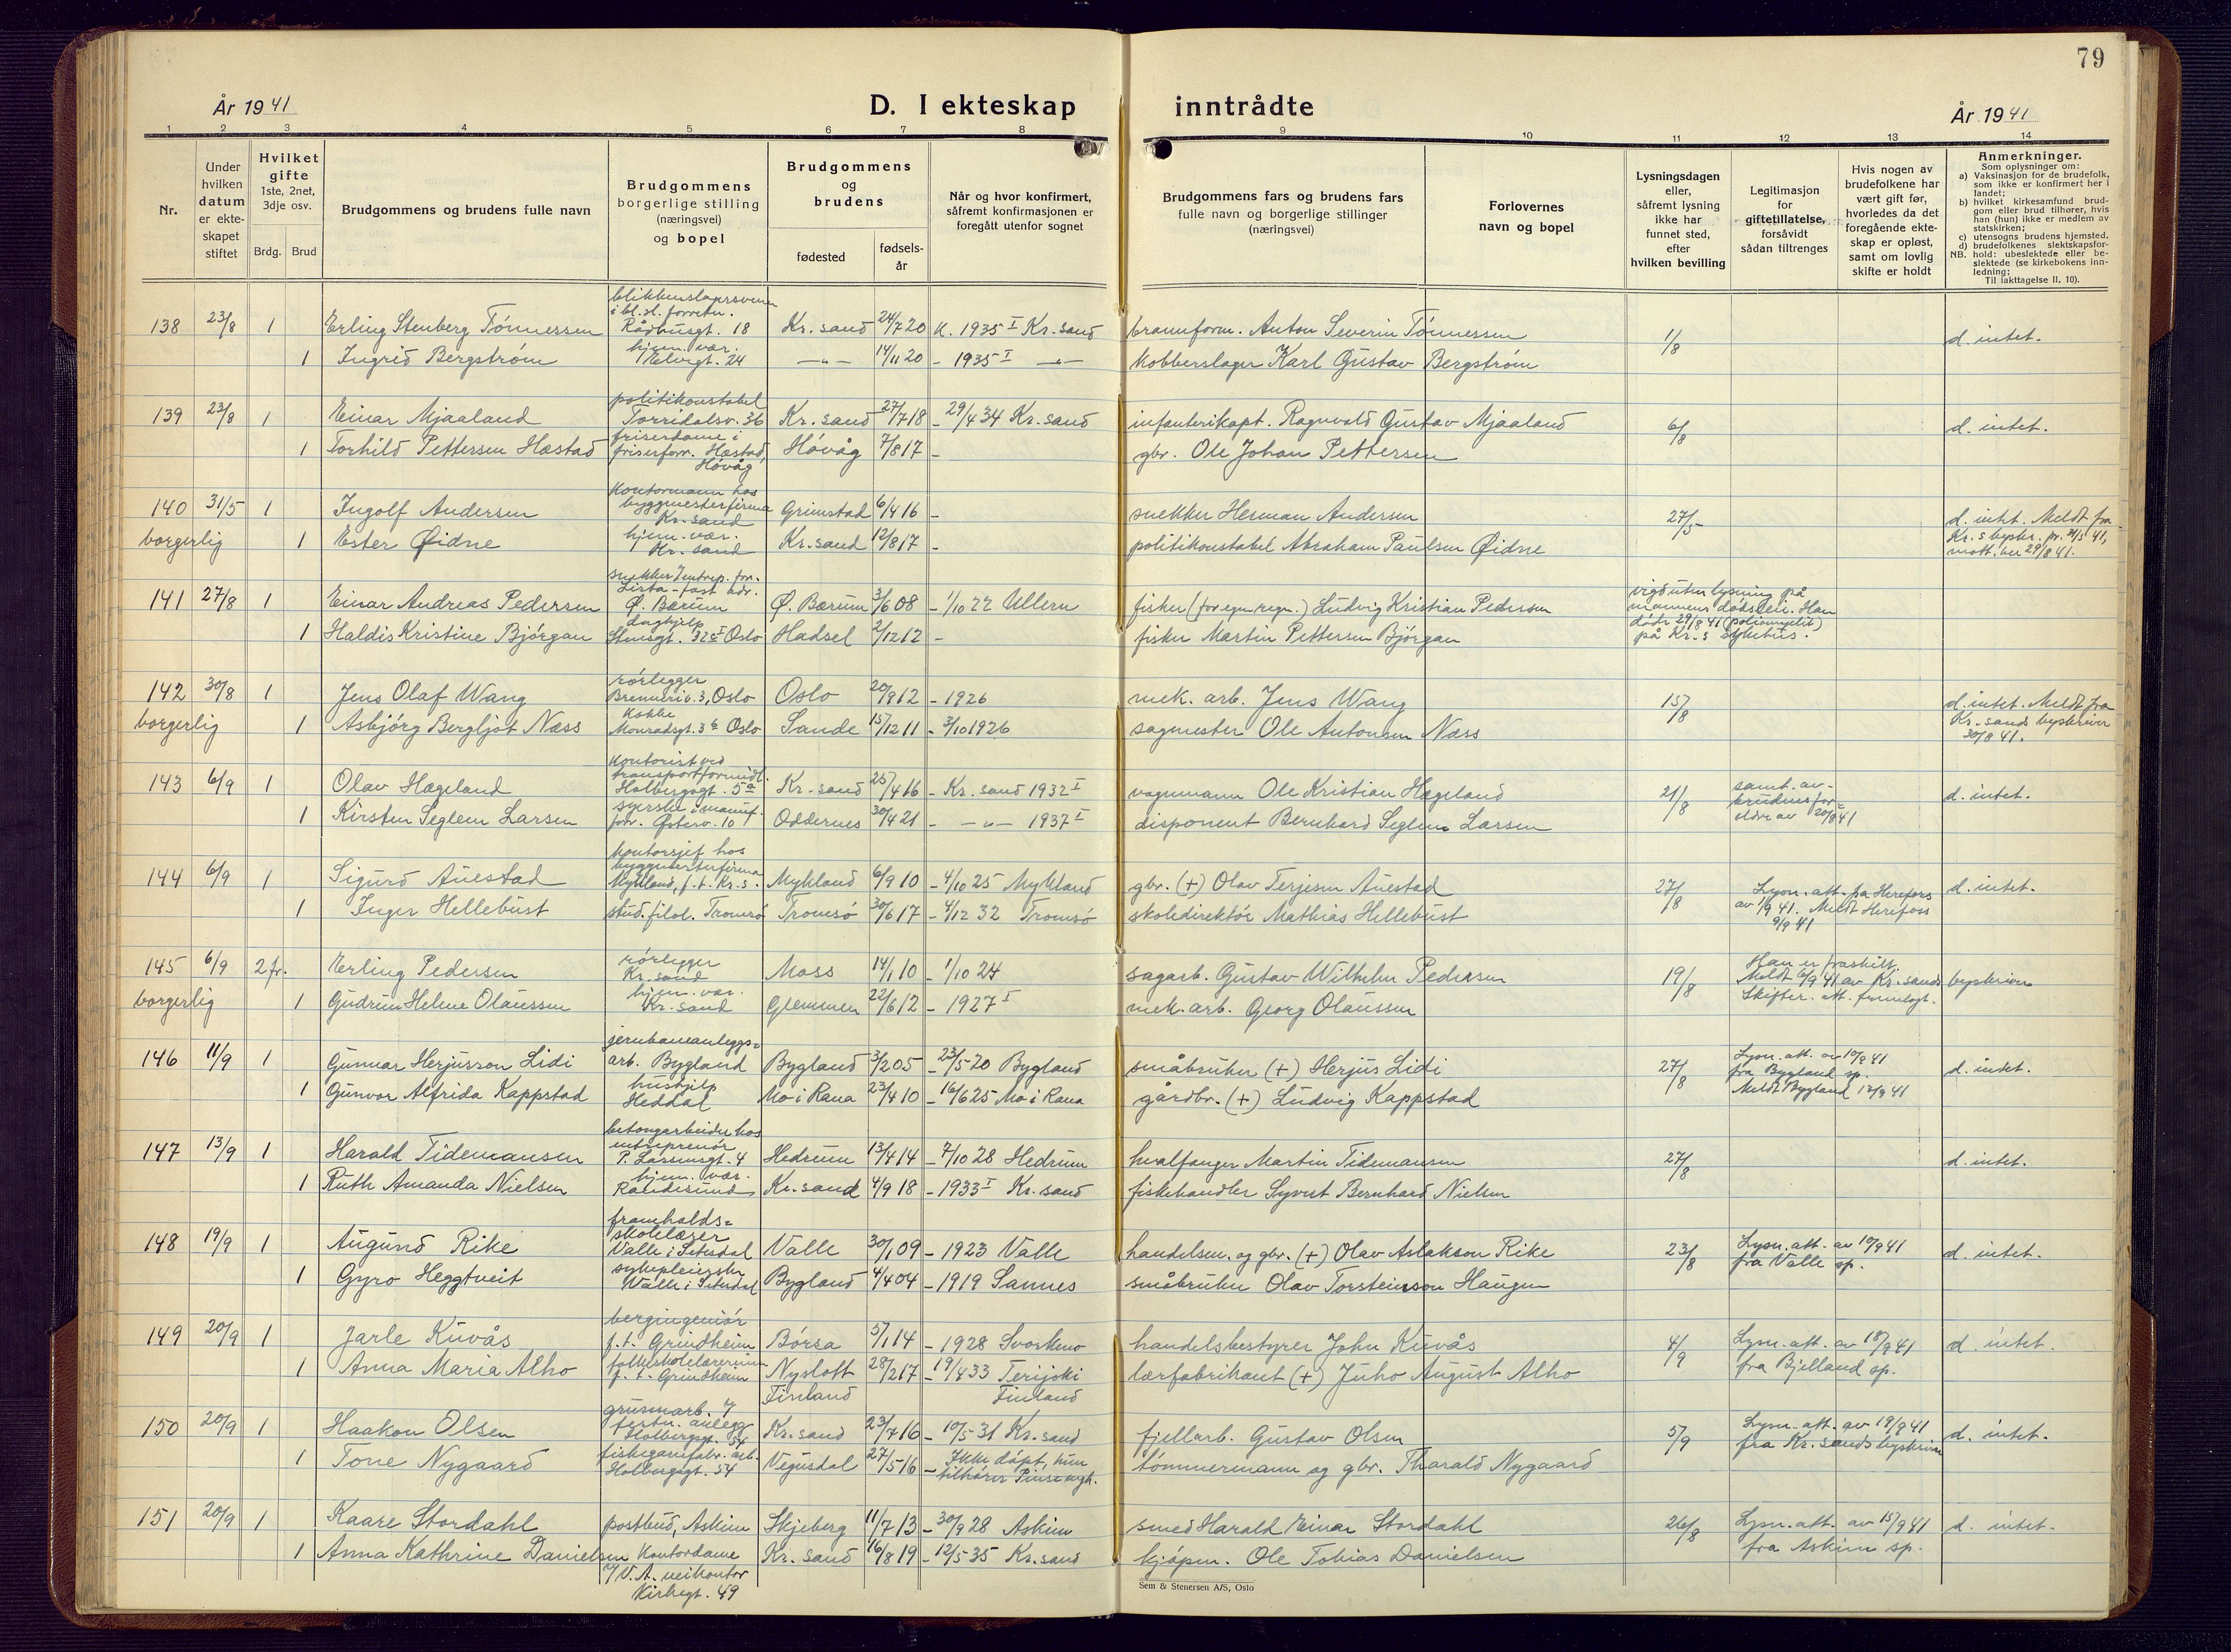 79
År 1941
D. I ekteskap inntrådte
År 1941
1 2 3 4 5 6 7 8 9 10 11 12 13 14
Nr.
Under hvilken datum er ekteskapet stiftet
Hvilket gifte 1ste, 2net, 3dje osv.
Brdg. Brud
Brudgommens og brudens fulle navn
Brudgommens borgerlige stilling (næringsvei) og bopel
Brudgommens og brudens
fødested
fødsels-år
Når og hvor konfirmert, såfremt konfirmasjonen er foregått utenfor sognet
Brudgommens fars og brudens fars fulle navn og borgerlige stillinger (næringsvei)
Forlovernes navn og bopel
Lysningsdagen eller, såfremt lysning ikke har funnet sted, efter hvilken bevilling
Legitimasjon for giftetillatelse, forsåvidt sådan tiltrenges
Hvis nogen av brudefolkene har vært gift før, hvorledes da det foregående ekteskap er opløst, samt om lovlig skifte er holdt
Anmerkninger.
Som oplysninger om:
a) Vaksinasjon for de brudefolk, som ikke er konfirmert her i landet;
b) hvilket kirkesamfund brudgom eller brud tilhører, hvis han (hun) ikke er medlem av statskirken;
c) utensogns brudens hjemsted.
d) brudefolkenes slektskapsforhold: ubeslektede eller beslektede (se kirkebokens innledning;
NB.
Til iakttagelse II. 10).
138 23/8 1 Erling Stenberg Tönnessen blikkenslagersvenn i bl.sl. forretn. Rådhusgt. 18 Kr.sand 24/7 20 K. 1935 I Kr.sand brannform. Anton Severin Tönnessen 1/8 d. intet.
1 Ingrid Bergström hjem. vær. Elvegt. 24 —"— 14/11 20 - 1935 I —"— kobberslager Karl Gustav Bergström
139 23/8 1 Einar Mjaaland politikonstabel Torridalsv. 36 Kr.sand 27/7 18 - 29/4 34 Kr.sand infanterikapt. Ragnvald Gustav Mjaaland 6/8 d. intet.
1 Torhild Pettersen Hæstad friserdame i friserforr. Hæstad, Hövåg Hövåg 7/8 17 - gbr. Ole Johan Pettersen
140 31/5 1 Ingolf Andersen kontormann hos byggmesterfirma Kr.sand Grimstad 6/4 16 - snekker Herman Andersen 27/5 d. intet. Meldt fra Kr.s byskr. pr. 31/5 41, mott. her 29/8 41.
borgerlig 1 Ester Øidne hjem. vær. Kr.sand Kr.sand 12/8 17 - politikonstabel Abraham Paulsen Øidne
141 27/8 1 Einar Andreas Pedersen snekker Lista - fast adr. Ö. Bærum Ö. Bærum 3/6 08 - 1/10 22 Ullern fisker (for egen regn.) Ludvig Kristian Pedersen vigd uten lysning på mannens dödsleie. Han döde 29/8 41 (poliomyelit) på Kr.s sykehus.
1 Haldis Kristine Björgan daghjelp Stensgt. 32c I Oslo Hadsel 2/12 12 - fisker Martin Pettersen Björgan
142 30/8 1 Jens Olaf Wang rörlegger Brenneriv. 3, Oslo Oslo 20/9 12 - 1926 mek. arb. Jens Wang 15/8 d. intet. Meldt fra Kr.sands byskriver 30/8 41.
borgerlig 1 Asbjörg Bergljot Næss kokke Monradsgt. 3b Oslo Sande 15/12 11 - 3/10 1926 sagmester Ole Antonsen Næss
143 6/9 1 Olav Hægeland kontorist ved transportformidl. Holbergsgt. 5a Kr.sand 25/4 16 - Kr.sand 1932 I vognmann Ole Kristian Hægeland 21/8 samt. av brudens foreldre av 20/8 41 d. intet.
1 Kirsten Seglem Larsen syerske i manuf. forr. Österv. 10 Oddernes 30/4 21 - —"— 1937 I disponent Bernhard Seglem Larsen
144 6/9 1 Sigurd Auestad kontorsjef hos byggmesterfirma Mykland, f.t. Kr.s. Mykland 6/9 10 - 4/10 25 Mykland gbr. (+) Olav Terjesen Auestad 27/8 Lysn. att. fra Herefoss av 1/9 41. Meldt Herefoss 9/9 41 d. intet.
1 Inger Hellebust stud. filol. Tromsö Tromsö 30/6 17 - 4/12 32 Tromsö skoledirektör Mathias Hellebust
145 6/9 2 fr. Erling Pedersen rörlegger Kr.sand Moss 14/1 10 - 1/10 24 sagarb. Gustav Wilhelm Pedersen 19/8 Han er fraskilt. Meldt 6/9 41 av Kr.sands byskriver Skifter. att. fremlagt.
borgerlig 1 Gudrun Helene Olaussen hjem. vær. Kr.sand Glemmen 22/6 12 - 1927 I mek. arb. Georg Olaussen
146 11/9 1 Gunnar Herjusson Lidi jernbaneanleggs= arb. Bygland Bygland 3/2 05 - 23/5 20 Bygland småbruker (+) Herjus Lidi 27/8 Lysn. att. av 10/9 41 fra Bygland sp. Meldt Bygland 12/9 41 d. intet.
1 Gunvor Alfrida Kappstad hushjelp Heddal Mo i Rana 23/4 10 - 16/6 25 Mo i Rana gårdbr. (+) Ludvig Kappstad
147 13/9 1 Harald Tidemansen betongarbeider hos entreprenör P. Larsensgt. 4 Hedrum 13/4 14 - 7/10 28 Hedrum hvalfanger Martin Tidemansen 27/8 d. intet.
1 Ruth Amanda Nielsen hjem. vær. Randesund Kr.sand 4/9 18 - 1933 I Kr.sand fiskehandler Syvert Bernhard Nielsen
148 19/9 1 Augund Rike framhalds= skolelærer Valle i Setesdal Valle 30/1 09 - 1923 Valle handelsm. og gbr. (+) Olav Aslakson Rike 23/8 Lysn. att. av 10/9 41 fra Valle sp. d. intet.
1 Gyro Heggtveit sykepleierske Valle i Setesdal Bygland 4/4 04 - 1919 Sannes småbruker Olav Torsteinsson Haugen
149 20/9 1 Jarle Kuvås bergingeniör f.t. Grindheim Börsa 5/1 14 - 1928 Svorkmo handelsbestyrer John Kuvås 4/9 Lysn. att. av 18/9 41 fra Bjelland sp. d. intet.
1 Anna Maria Alho folkeskolelærerinne f.t. Grindheim Nyslott Finland 28/2 17 - 19/4 33 Terijoki Finland lærfabrikant (+) Juho August Alho
150 20/9 1 Haakon Olsen grusarb. v/ festn. anlegg Holbergsgt. 54 Kr.sand 23/7 16 - 10/5 31 Kr.sand fjellarb. Gustav Olsen 5/9 Lysn. att. av 19/9 41 fra Kr.sands byskriver d. intet.
1 Tone Nygaard fiskegarnfabr. arb. Holbergsgt. 54 Vegusdal 27/5 16 - Ikke döpt, hun tilhörer Pinsemgh. tömmermann og gbr. Tharald Nygaard
151 20/9 1 Kaare Stordahl postbud, Askim Skjeberg 11/7 13 - 30/9 28 Askim smed Harald Einar Stordahl 26/8 Lysn. att. av 15/9 41 fra Askim sp. d. intet.
1 Anna Kathrine Danielsen kontordame v/ V.A. veikontor Kirkegt. 49 Kr.sand 16/8 19 - 12/5 35 Kr.sand kjöpm. Ole Tobias Danielsen
Sem & Stenersen A/S, Oslo